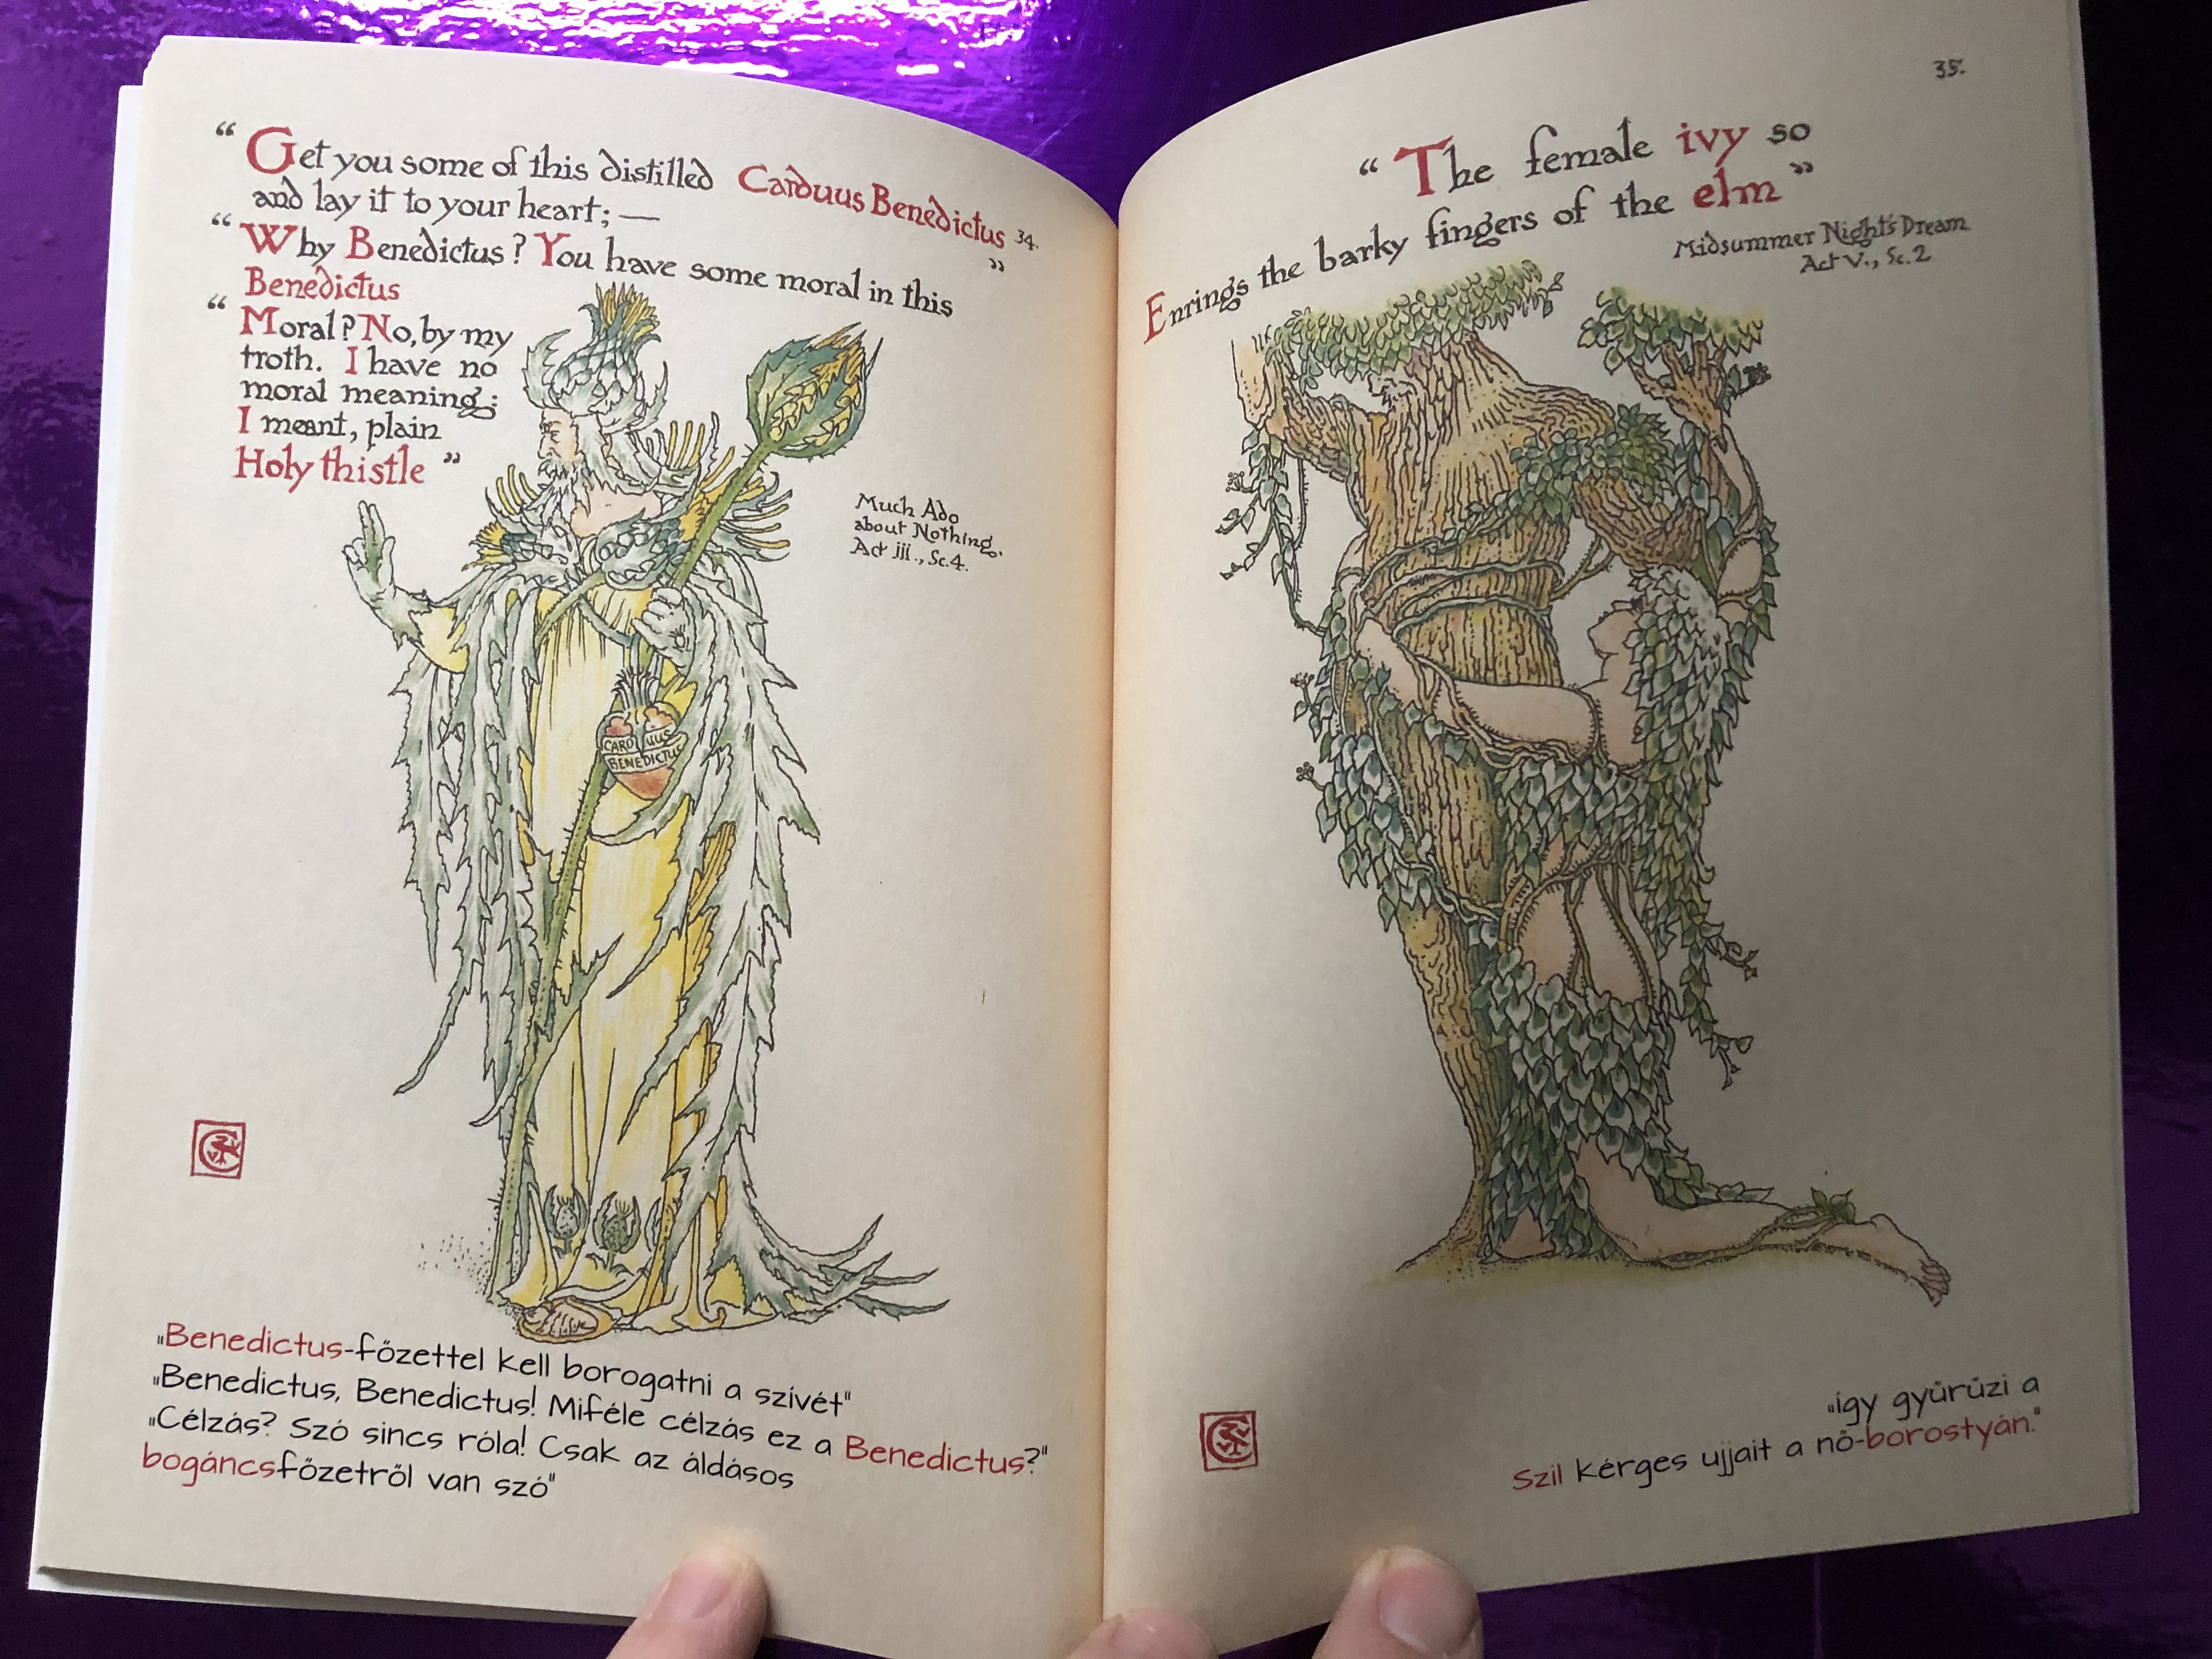 “Get you some of this distilled Carduus Benedictus 34.
and lay it to your heart; —
“Why Benedictus? You have some moral in this ”
Benedictus
“Moral? No, by my
troth. I have no
moral meaning;
I meant, plain
Holy thistle”
Much Ado
about Nothing.
Act iii., Sc.4.
CARDUUS
BENEDICTUS
„Benedictus-főzettel kell borogatni a szívét"
„Benedictus, Benedictus! Miféle célzás ez a Benedictus?"
„Célzás? Szó sincs róla! Csak az áldásos
bogáncsfőzetről van szó"
35.
“The female ivy so
Enrings the barky fingers of the elm”
Midsummer Night's Dream
Act V., Sc.2
„így gyűrűzi a
Szil kérges ujjait a nő-borostyán."